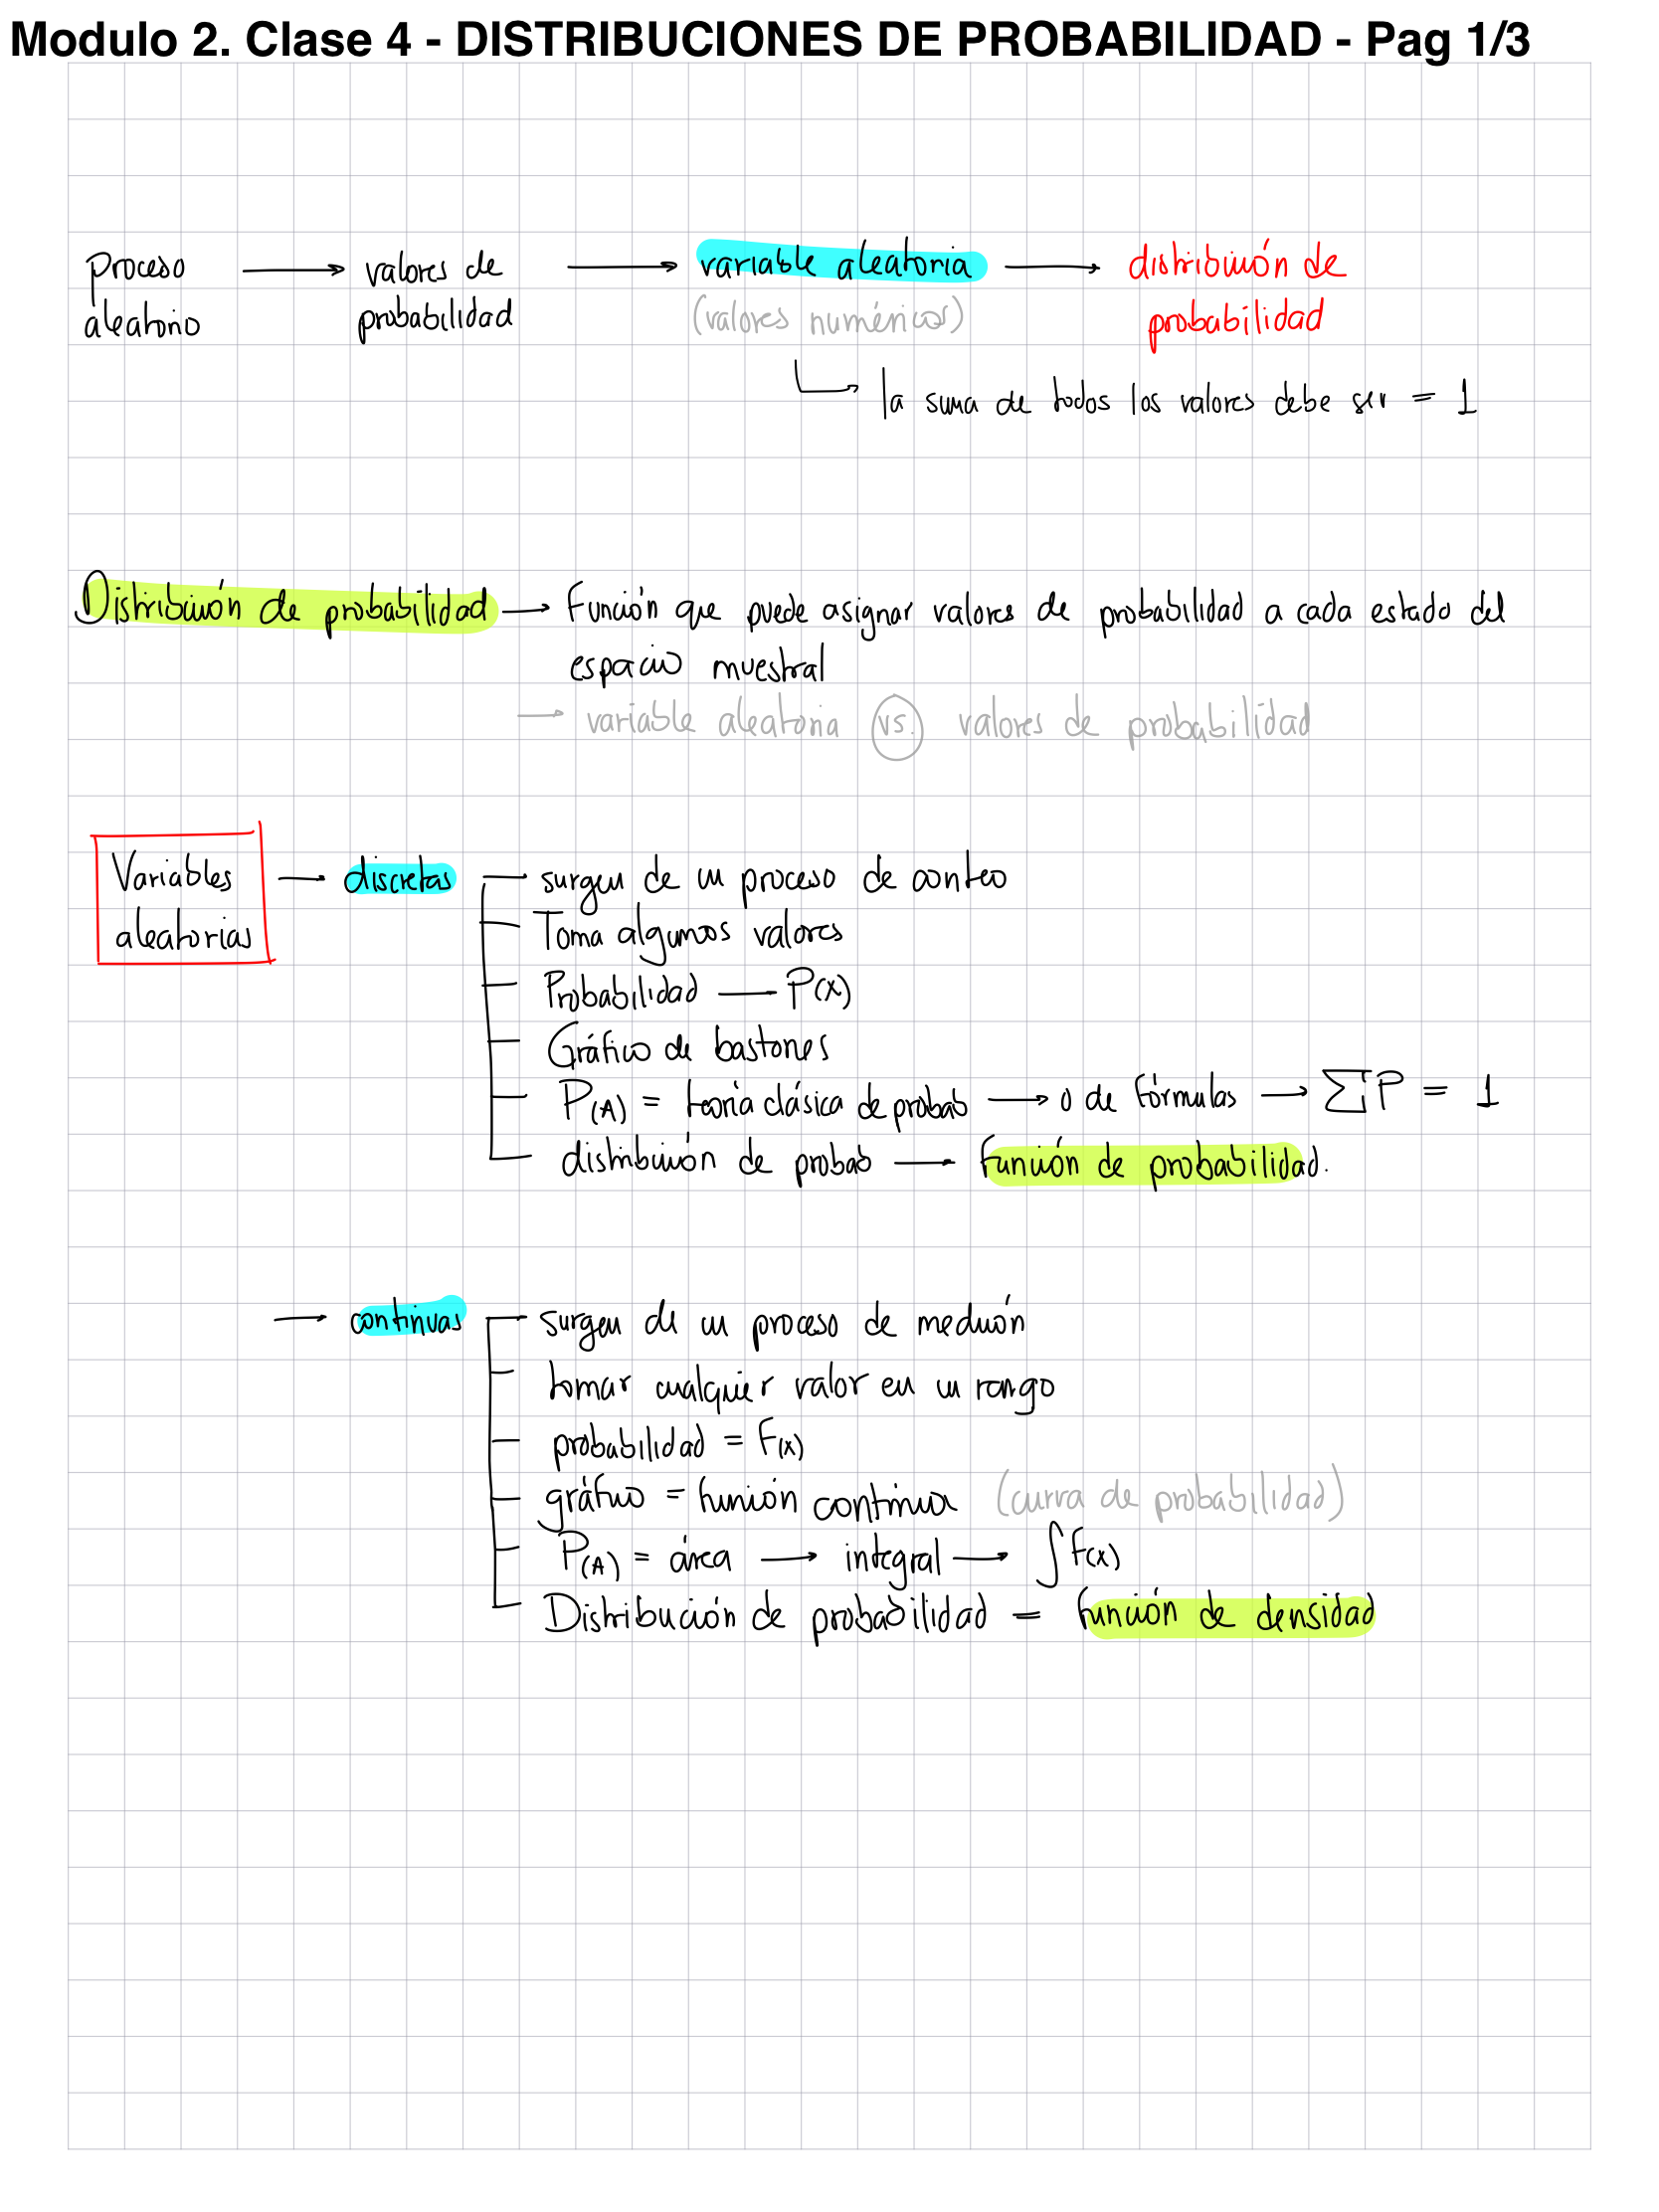 Modulo 2. Clase 4 - DISTRIBUCIONES DE PROBABILIDAD - Pag 1/3
Proceso aleatorio → valores de probabilidad → variable aleatoria (valores numéricos) → distribución de probabilidad
↳ la suma de todos los valores debe ser = 1
Distribución de probabilidad → Función que puede asignar valores de probabilidad a cada estado del
espacio muestral
→ variable aleatoria vs. valores de probabilidad
Variables aleatorias → discretas — surgen de un proceso de conteo
Toma algunos valores
Probabilidad — P(x)
Gráfico de bastones
P(A) = teoría clásica de probab → o de fórmulas → ∑P = 1
distribución de probab — función de probabilidad.
→ continuas — surgen de un proceso de medición
tomar cualquier valor en un rango
probabilidad = F(x)
gráfico = función continua (curva de probabilidad)
P(A) = área → integral → ∫F(x)
Distribución de probabilidad = función de densidad